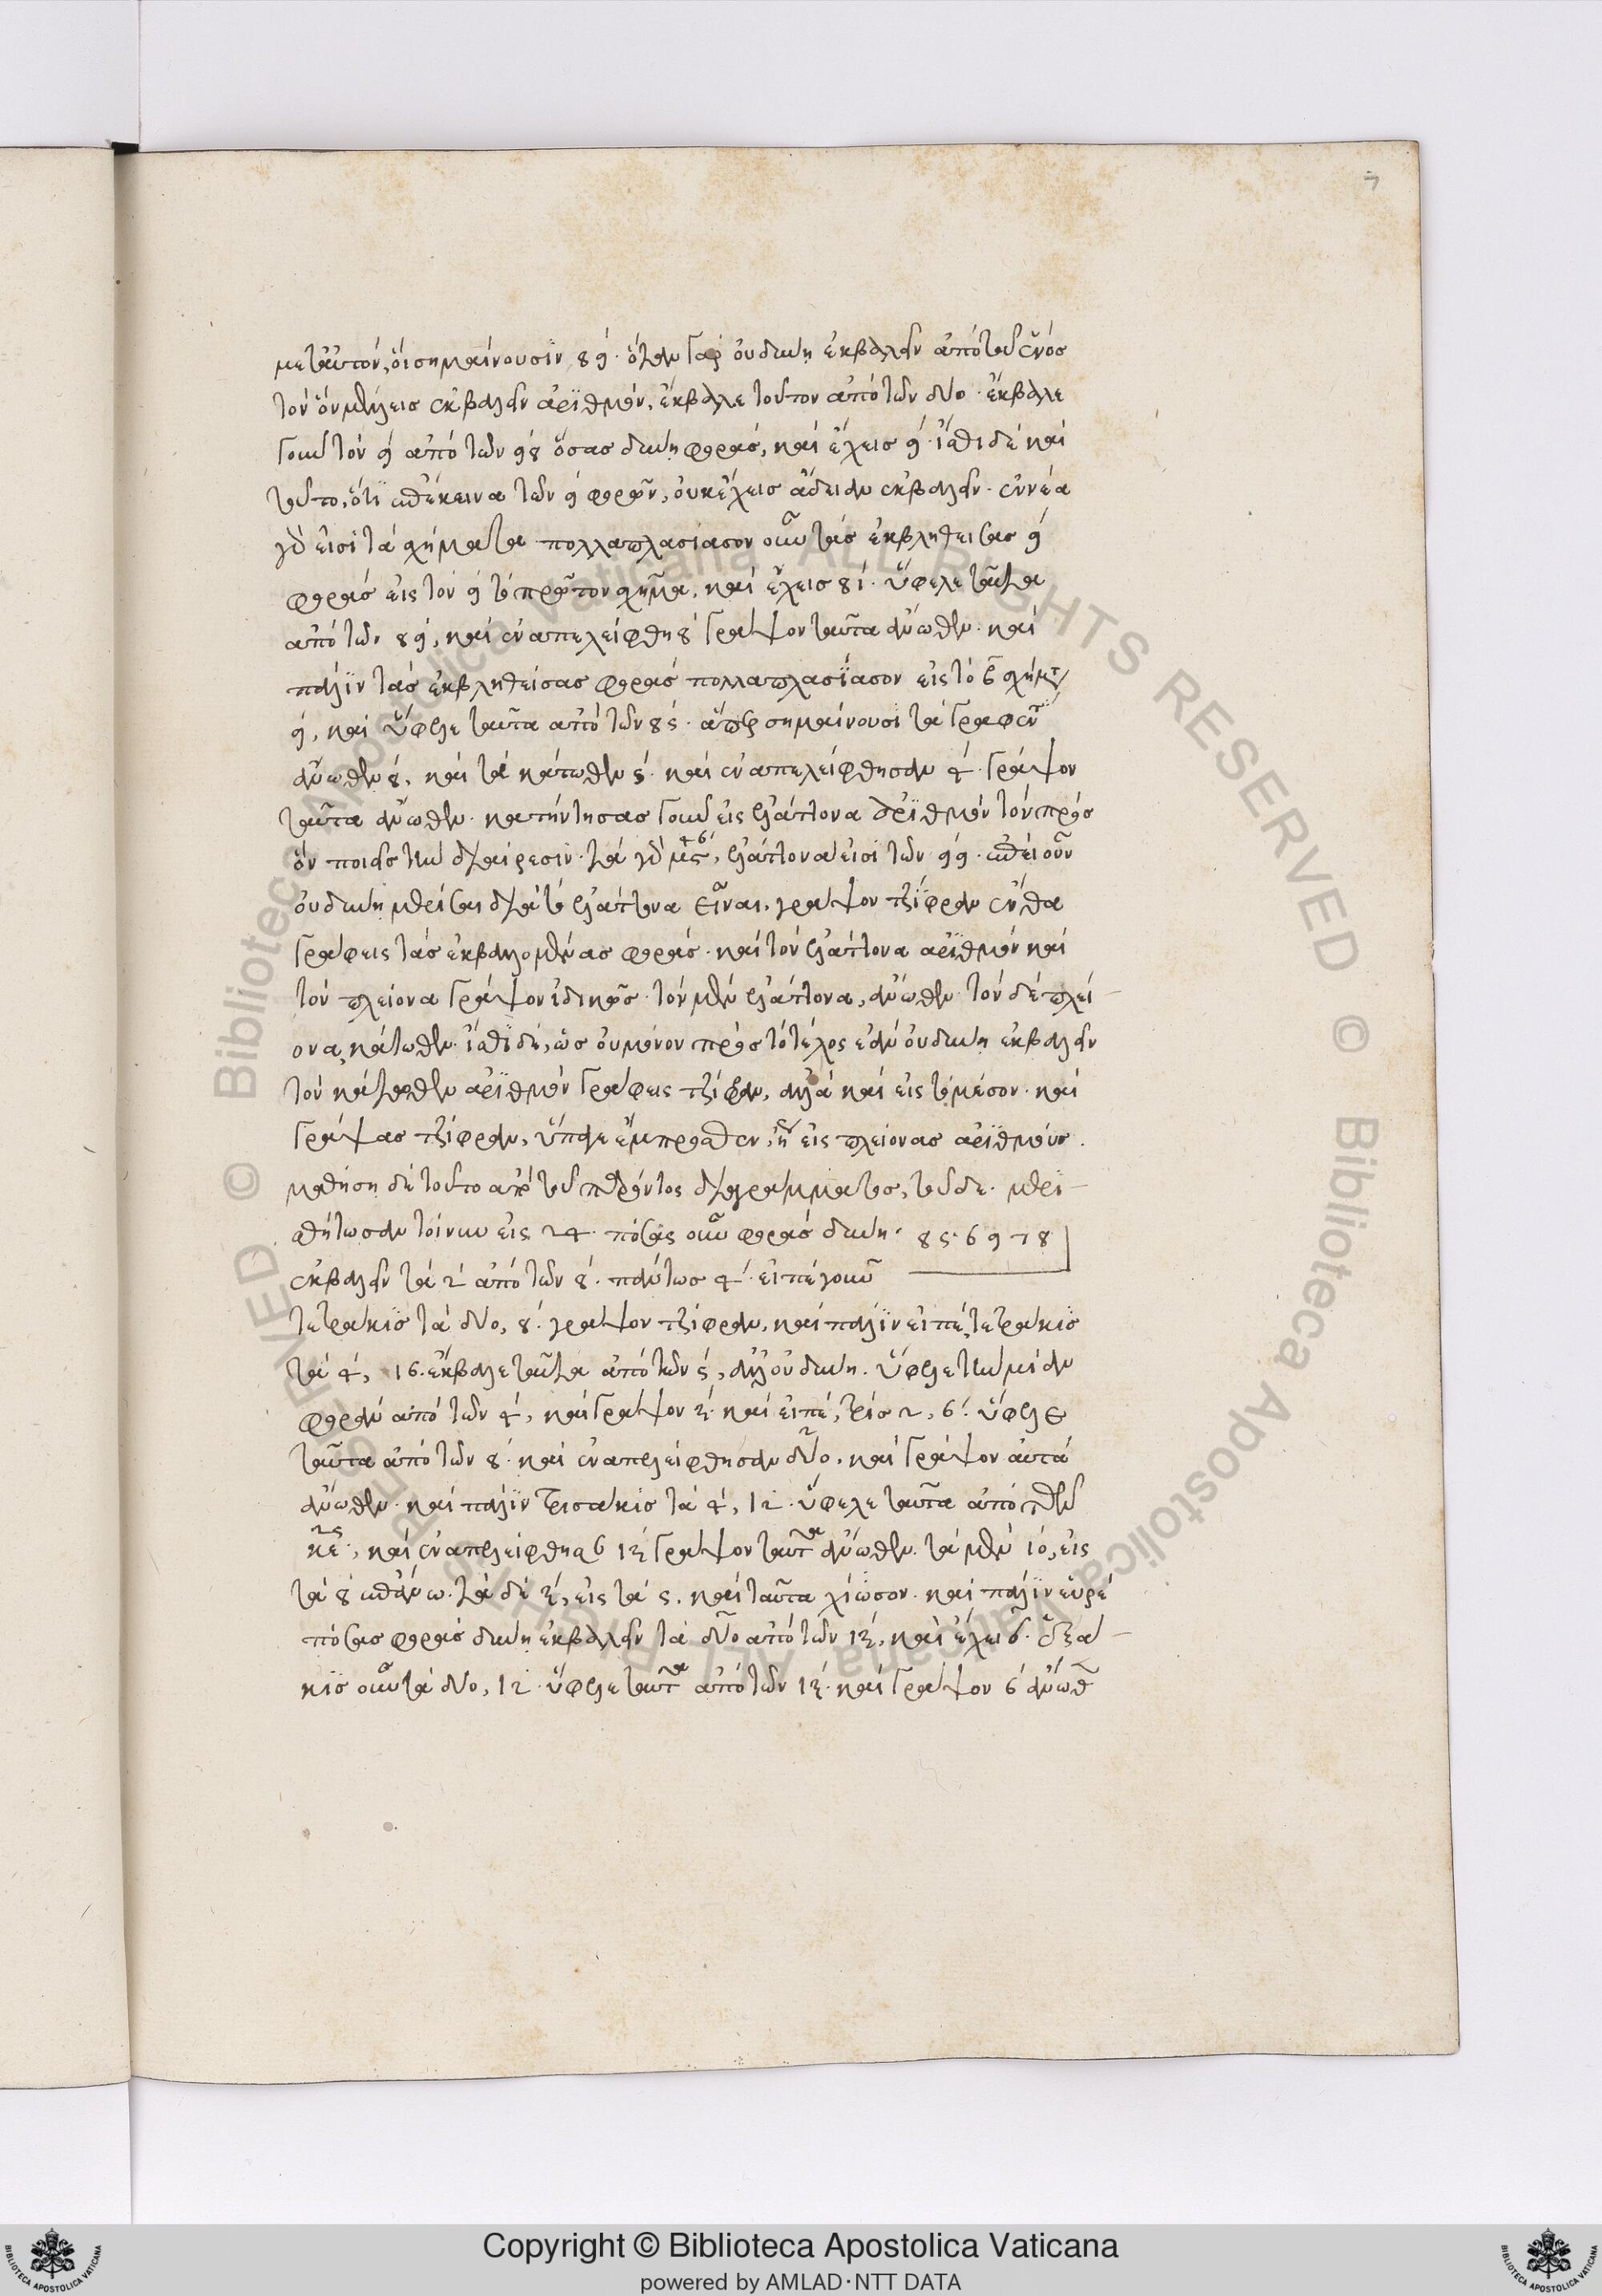 7
μετ' αὐτὸν, οἳ σημαίνουσϊν 89· ὅταν γὰρ οὐ δύνῃ ἐκβαλεῖν ἀπὸ τοῦ ἑνὸς
τὸν ὃν μέλλεις ἐκβαλεῖν ἀρϊθμὸν, ἔκβαλε τοῦτον ἀπὸ τῶν δύο· ἔκβαλε
γοῦν τὸν 9 ἀπὸ τῶν 98 ὅσας δύνῃ φορὰς, καὶ ἔχεις 9· ἴσθι δὲ καὶ
τοῦτο, ὅτϊ ἐπέκεινα τῶν 9 φορῶν, οὐκ ἔχεις ἄδειαν ἐκβαλεῖν· ἐννέα
γάρ εἰσϊ τὰ σχήματα πολλαπλασίασον οὖν τὰς ἐκβληθείσας 9
φορὰς εἰς τὸν 9 τὸ πρῶτον σχῆμα, καὶ ἔχεις 81· ὕφελε ταῦτα
ἀπὸ τῶν 89, καὶ ἐναπελείφθη 8 γράψον ταῦτα ἄνωθεν· καὶ
πάλϊν τὰς ἐκβληθείσας φορὰς πολλαπλασϊασον εἰς τὸ β σχῆμα
9, καὶ ὕφελε ταῦτα ἀπὸ τῶν 85· ἅπερ σημαίνουσϊ τὰ γραφέντα
ἄνωθεν 8, καὶ τὰ κάτωθεν 5· καὶ ἐναπελείφθησαν 4· γράψον
ταῦτα ἄνωθεν· κατήντησας γοῦν εἰς ἐλάττονα ἀρϊθμὸν τὸν πρὸς
ὃν ποιεῖς τὴν διαίρεσϊν· τὰ γὰρ μς 46, ἐλάττονα εἰσὶ τῶν 99· ἐπεὶ οὖν
οὐ δύνῃ μερίσαι διὰ τὸ ἐλάττονα εἶναι, γράψον τζίφραν ἔνθα
γράφεις τὰς ἐκβαλλομένας φορὰς· καὶ τὸν ἐλάττονα ἀρϊθμὸν καὶ
τὸν πλείονα γράψον ἰδικῶς· τὸν μὲν ἐλάττονα, ἄνωθεν· τὸν δὲ πλεί-
ονα, κάτωθεν· ἴσθϊ δὲ, ὡς οὐ μόνον πρὸς τὸ τέλος ἐὰν οὐ δύνῃ ἐκβαλεῖν
τὸν κάτωθεν ἀρϊθμὸν γράφεις τζίφραν, ἀλλὰ καὶ εἰς τὸ μέσον· καὶ
γράψας τζίφραν, ὕπαγε ἔμπροσθεν, ἢ εἰς πλείονας ἀρϊθμοὺς.
μαθήσῃ δὲ τοῦτο ἀπὸ τοῦ παρόντος διαγράμματος, τοῦδε· μερϊ-
σθήτωσαν τοίνυν εἰς 24· πόσας οὖν φορὰς δύνῃ· 856978
ἐκβαλεῖν τὰ 2 ἀπὸ τῶν 8· πάντως 4· εἰπὲ γοῦν
τετράκϊς τὰ δύο, 8· γράψον τζίφραν, καὶ πάλϊν εἰπὲ, τετράκις
τὰ 4, 16· ἔκβαλε ταῦτα ἀπὸ τῶν 5, ἀλλ' οὐ δύνῃ· ὕφελε τὴν μίαν
φορὰν ἀπὸ τῶν 4, καὶ γράψον 3· καὶ εἰπὲ, τρὶς 2, 6· ὕφελε
ταῦτα ἀπὸ τῶν 8· καὶ ἐναπελείφθησαν δύο 2, καὶ γράψον αὐτὰ
ἄνωθεν· καὶ πάλϊν τρισάκϊς τὰ 4, 12· ὕφελε ταῦτα ἀπὸ τῶν
κε 25, καὶ ἐναπελείφθησαν 13 γράψον ταῦτα ἄνωθεν· τὰ μὲν 10, εἰς
τὰ 8 ἐπάνω· τὰ δὲ 3, εἰς τὰ 5, καὶ ταῦτα χίωσον· καὶ πάλϊν εὑρὲ
πόσας φορὰς δύνῃ ἐκβαλεῖν τὰ δύο ἀπὸ τῶν 13, καὶ ἔχει 6· ἑξά-
κϊς οὖν τὰ δύο, 12· ὕφελε ταῦτα ἀπὸ τῶν 13· καὶ γράψον 6 ἄνωθεν
Copyright © Biblioteca Apostolica Vaticana
powered by AMLAD·NTT DATA